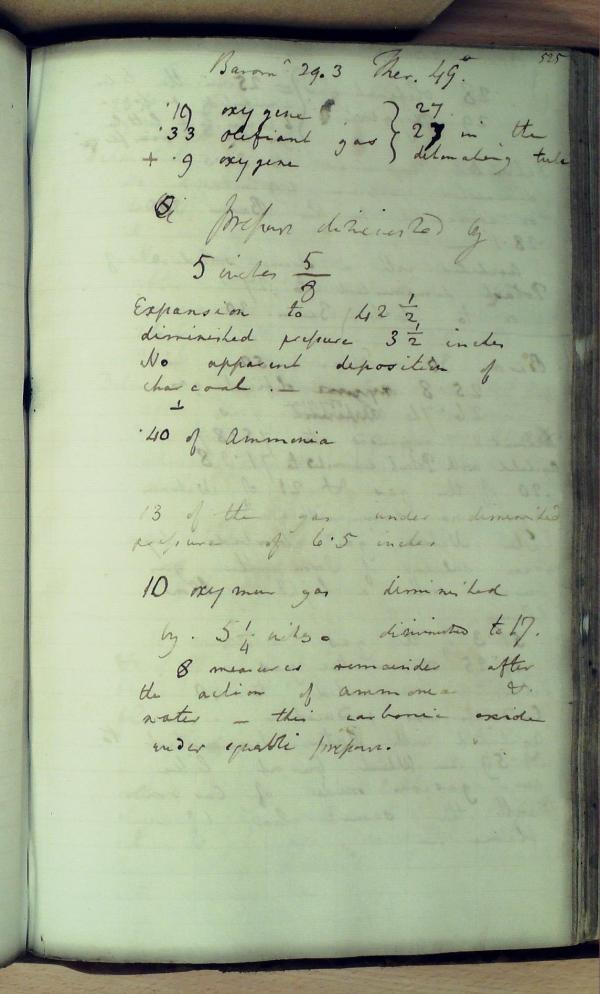 525
Barom^r 29.3 Ther. 49°.
·19 oxygene } 27
·33 olefiant gas } 27 in the
+ ·9 oxygene } detonating tube
pressure diminished by
5 inches 5/8
Expansion to 42 1/2
diminished pressure 3 1/2 inches
No apparent deposition of
charcoal. –
·40 of Ammonia
13 of the gas under diminished
pressure of 6·5 inches
10 oxymur gas diminished
by. 5 1/4 inches diminished to 17.
8 measures remainder after
the action of ammonia &
water – this carbonic oxide
under equable pressure.